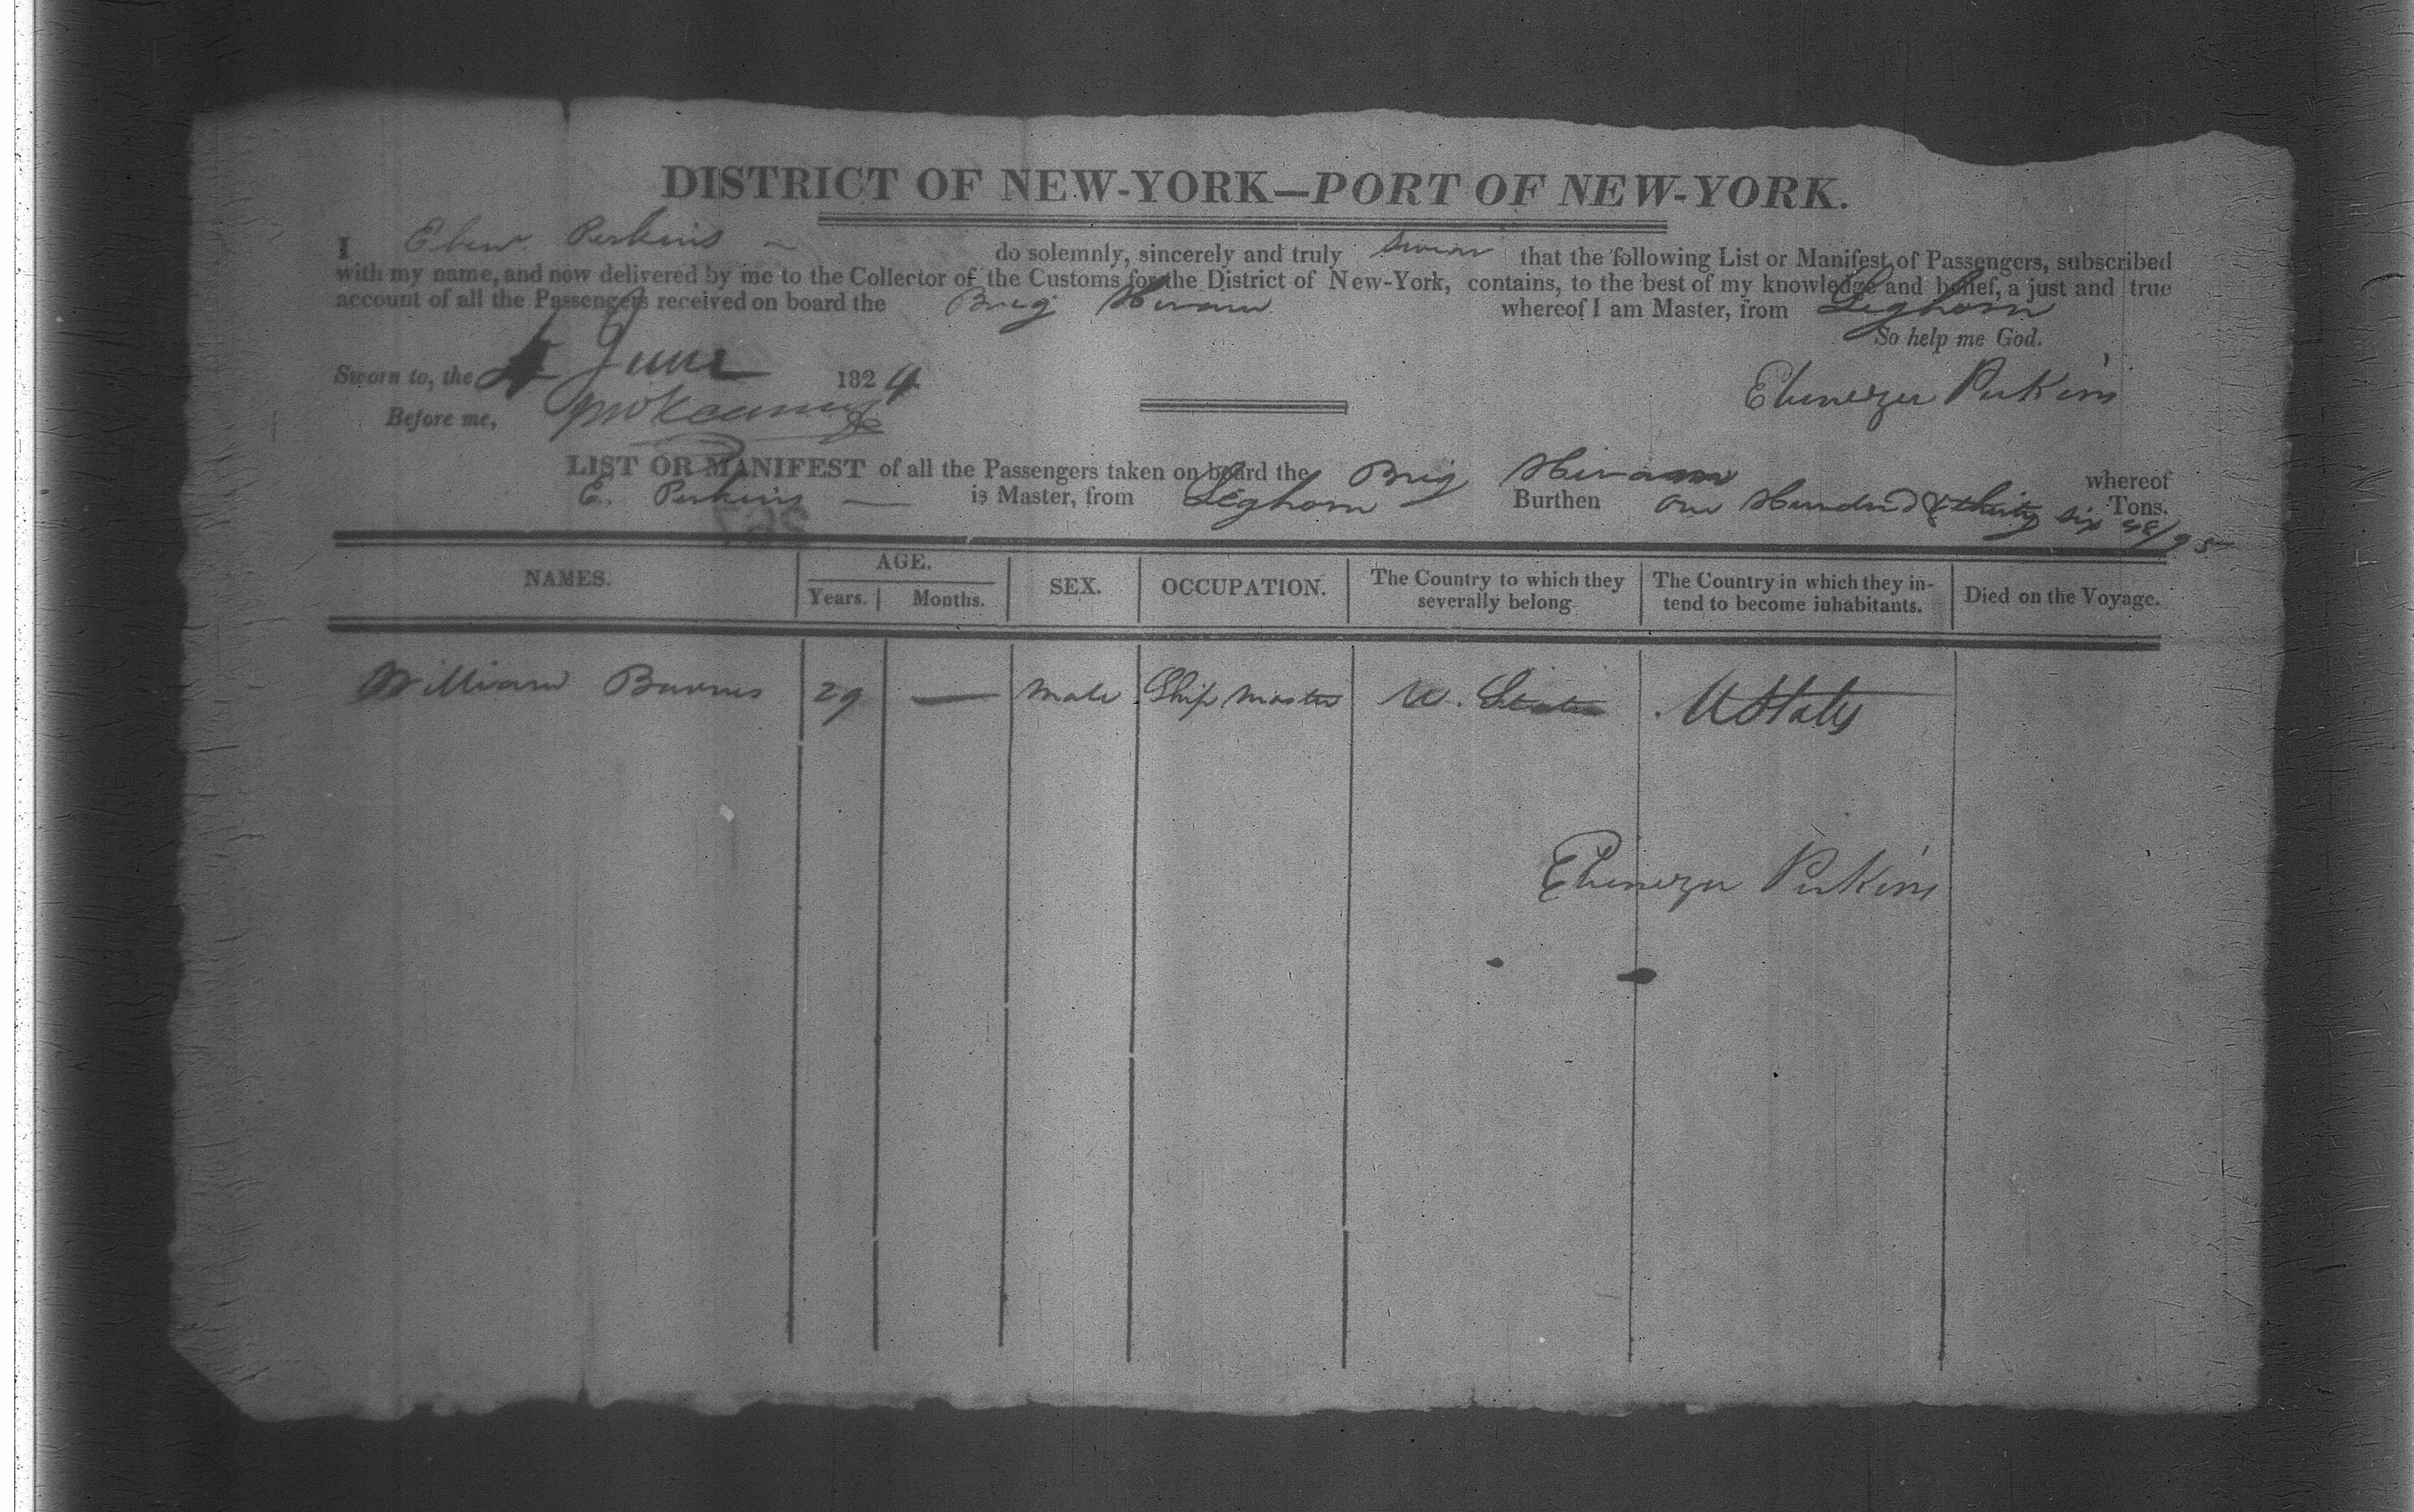 DISTRICT OF NEW-YORK—PORT OF NEW-YORK.
I Eben Perkins do solemnly, sincerely and truly swear that the following List or Manifest of Passengers, subscribed
with my name, and now delivered by me to the Collector of the Customs for the District of New-York, contains, to the best of my knowledge and belief, a just and true
account of all the Passengers received on board the Brig Hiram whereof I am Master, from Leghorn
So help me God.
Sworn to, the 4 June 1824
Ebenezer Perkins
Before me,
LIST OR MANIFEST of all the Passengers taken on board the Brig Hiram whereof
E. Perkins — is Master, from Leghorn Burthen One Hundred & thirty six /95 Tons.
NAMES. AGE. Years. Months. SEX. OCCUPATION. The Country to which they severally belong The Country in which they intend to become inhabitants. Died on the Voyage.
William Barnes 29 — Male Ship Master U. States U States
Ebenezer Perkins